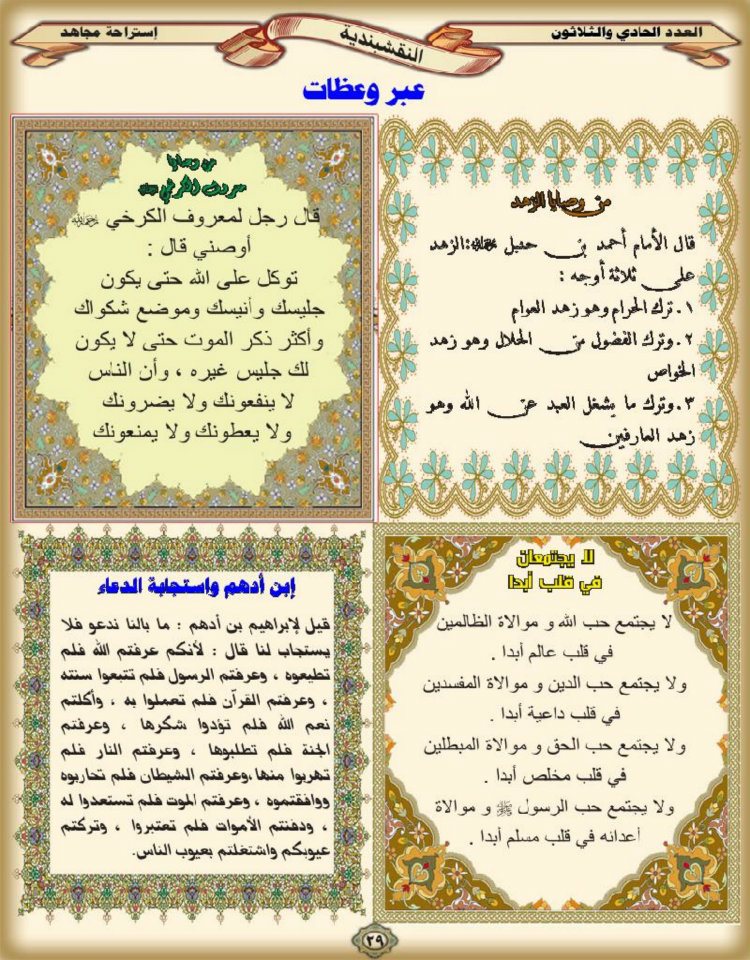 العدد الحادي والثلاثون
النقشبندية
إستراحة مجاهد
عبر وعظات
من وصايا الزهد
قال الأمام أحمد بن حنبل رحمه الله :الزهد
على ثلاثة أوجه :
١.ترك الحرام وهو زهد العوام
٢.وترك الفضول من الحلال وهو زهد
الخواص
٣.وترك ما يشغل العبد عن الله وهو
زهد العارفين
من وصايا
معروف الكرخي
قال رجل لمعروف الكرخي رحمه الله
أوصني قال :
توكل على الله حتى يكون
جليسك وأنيسك وموضع شكواك
وأكثر ذكر الموت حتى لا يكون
لك جليس غيره ، وأن الناس
لا ينفعونك ولا يضرونك
ولا يعطونك ولا يمنعونك
لا يجتمعان
في قلب أبدا
لا يجتمع حب الله و موالاة الظالمين
في قلب عالم أبدا .
ولا يجتمع حب الدين و موالاة المفسدين
في قلب داعية أبدا .
ولا يجتمع حب الحق و موالاة المبطلين
في قلب مخلص أبدا .
ولا يجتمع حب الرسول ﷺ و موالاة
أعدائه في قلب مسلم أبدا .
إبن أدهم واستجابة الدعاء
قيل لإبراهيم بن أدهم : ما بالنا ندعو فلا
يستجاب لنا قال : لأنكم عرفتم الله فلم
تطيعوه ، وعرفتم الرسول فلم تتبعوا سنته
، وعرفتم القرآن فلم تعملوا به ، وأكلتم
نعم الله فلم تؤدوا شكرها ، وعرفتم
الجنة فلم تطلبوها ، وعرفتم النار فلم
تهربوا منها ،وعرفتم الشيطان فلم تحاربوه
ووافقتموه ، وعرفتم الموت فلم تستعدوا له
، ودفنتم الأموات فلم تعتبروا ، وتركتم
عيوبكم واشتغلتم بعيوب الناس.
٢٩